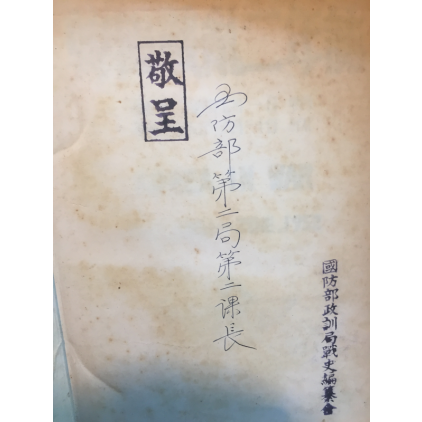 敬呈
国防部第二局第二課長
國防部政訓局戰史編纂會